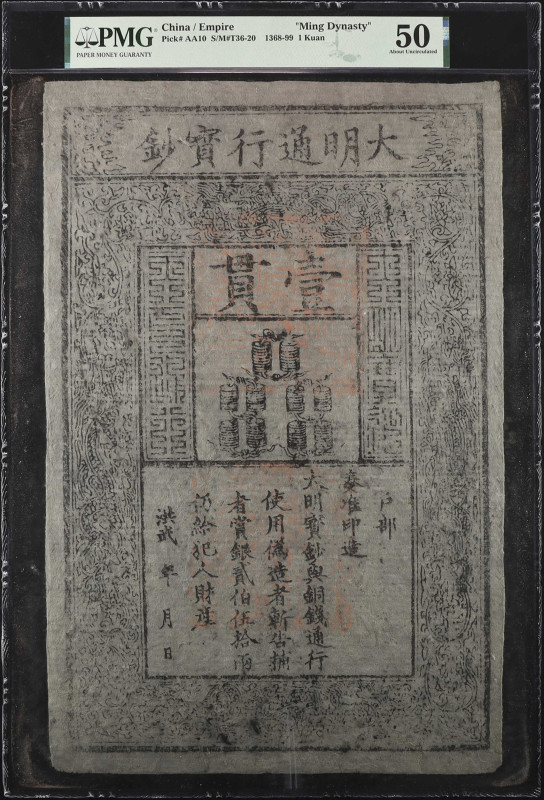 PMG
PAPER MONEY GUARANTY
China / Empire "Ming Dynasty"
Pick# AA10 S/M#T36-20 1368-99 1 Kuan
50
About Uncirculated
大明通行寶鈔
壹貫
户部
奏准印造
大明寶鈔與銅錢通行
使用偽造者斬告捕
者賞銀貳伯伍拾兩
仍給犯人財産
洪武 年 月 日